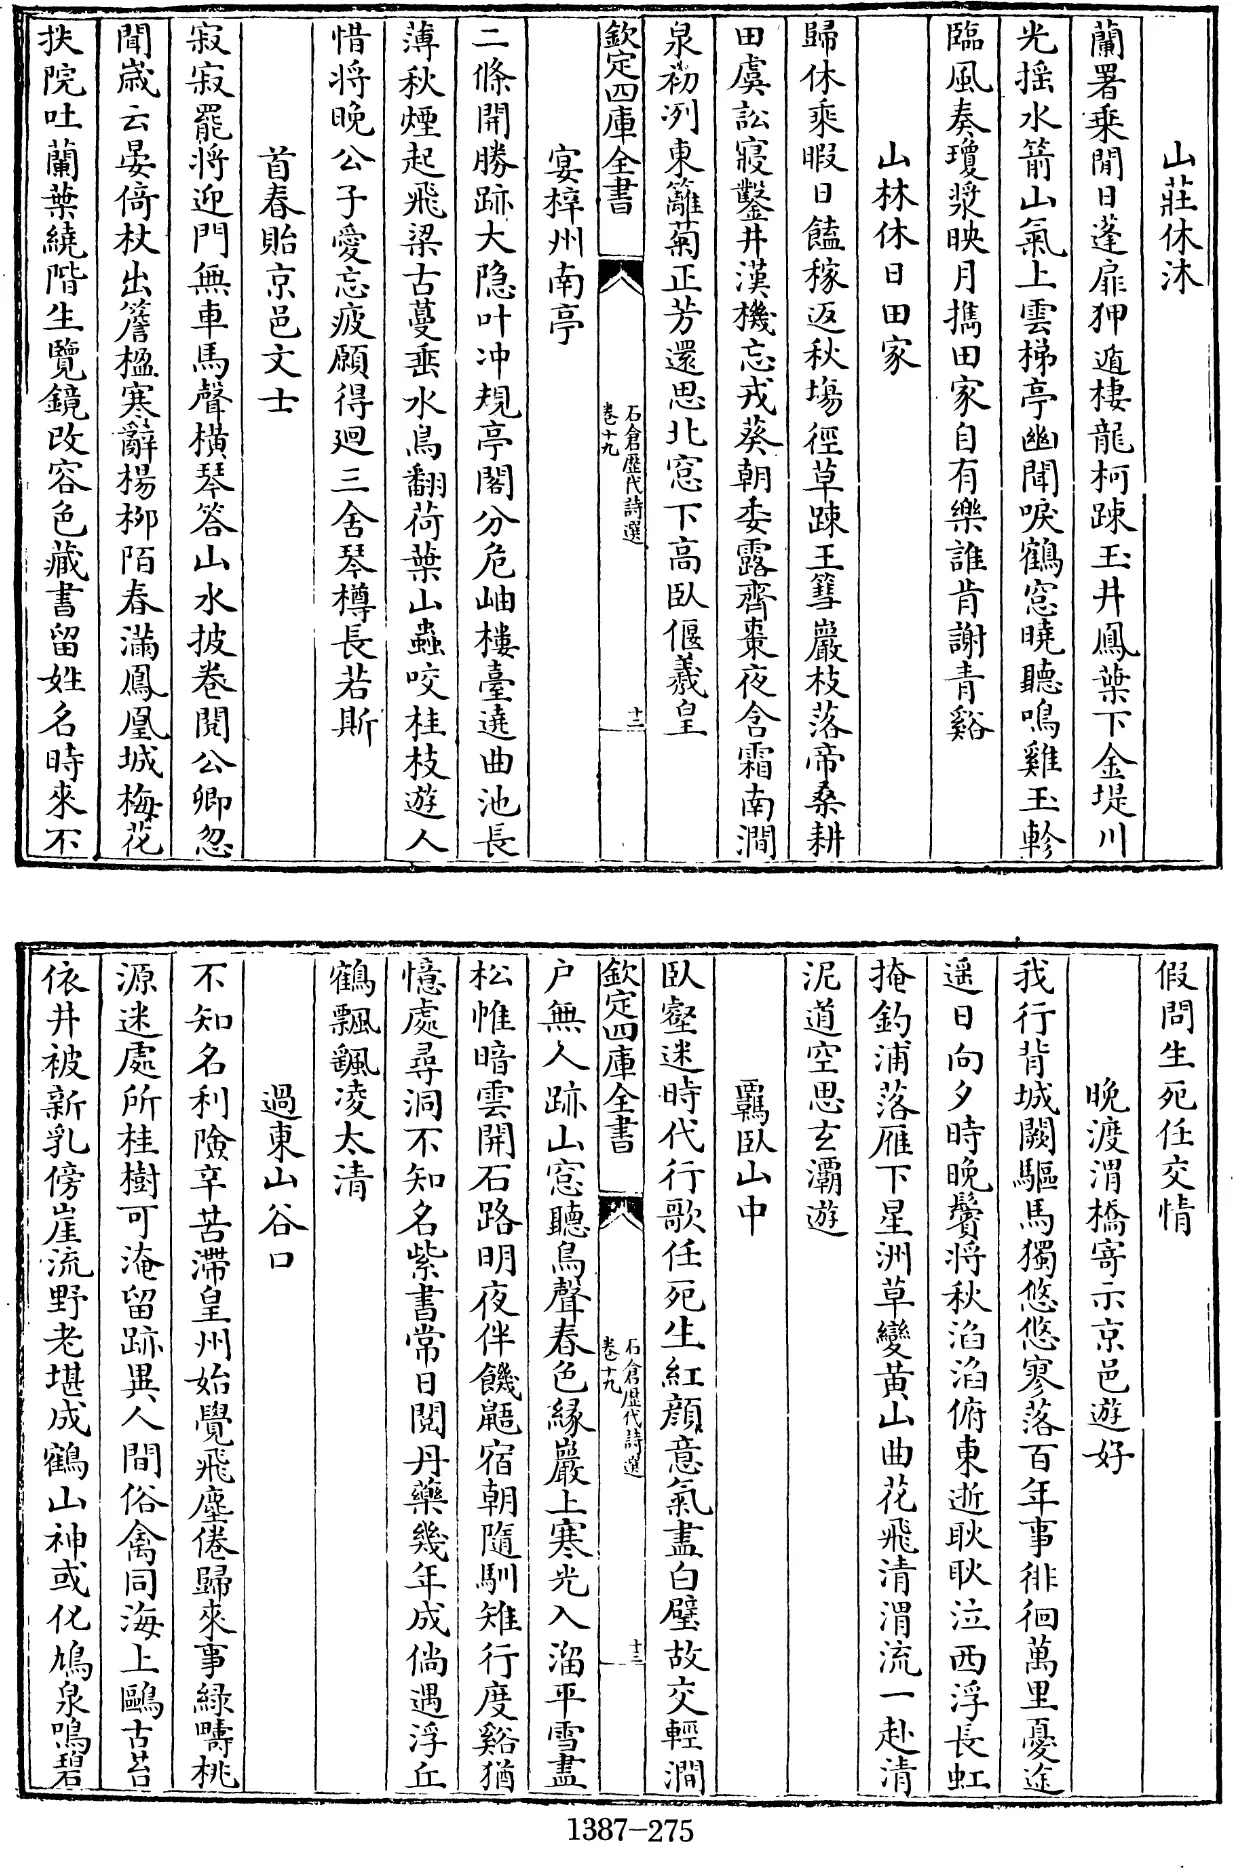 山莊休沐
蘭署乘閒日蓬扉狎遁棲龍柯踈玉井鳳葉下金堤川
光揺水箭山氣上雲梯亭幽聞唳鶴窓曉聽鳴雞玉軫
臨風奏瓊漿映月擕田家自有樂誰肯謝青谿
山林休日田家
歸休乘暇日饁稼返秋塲徑草踈王篲巖枝落帝桑耕
田虞訟寢鑿井漢機忘戎葵朝委露齊棗夜含霜南澗
泉初冽東籬菊正芳還思北窓下高臥偃羲皇
欽定四庫全書
石倉歴代詩選
卷十九
十二
宴梓州南亭
二條開勝跡大隐叶冲規亭閣分危岫樓臺遶曲池長
薄秋煙起飛梁古蔓垂水鳥翻荷葉山蟲咬桂枝遊人
惜将晚公子愛忘疲願得廻三舍琴樽長若斯
首春貽京邑文士
寂寂罷將迎門無車馬聲横琴答山水披卷閱公卿忽
聞歲云晏倚杖出簷楹寒辭楊柳陌春滿鳳凰城梅花
扶院吐蘭葉繞階生覽鏡改容色藏書留姓名時來不
假問生死任交情
晚渡渭橋寄示京邑遊好
我行背城闕驅馬獨悠悠寥落百年事徘徊萬里憂途
遥日向夕時晚鬢将秋滔滔俯東逝耿耿泣西浮長虹
掩釣浦落雁下星洲草變黄山曲花飛清渭流一赴清
泥道空思玄灞遊
羈臥山中
臥壑迷時代行歌任死生紅顔意氣盡白璧故交輕澗
户無人跡山窓聽鳥聲春色縁巖上寒光入溜平雪盡
欽定四庫全書
石倉歴代詩選
卷十九
十三
松帷暗雲開石路明夜伴饑鼯宿朝隨馴雉行度谿猶
憶處尋洞不知名紫書常日閲丹藥幾年成倘遇浮丘
鶴飄飖凌太清
過東山谷口
不知名利險辛苦滯皇州始覺飛塵倦歸來事緑疇桃
源迷處所桂樹可淹留跡異人間俗禽同海上鷗古苔
依井被新乳傍崖流野老堪成鶴山神或化鳩泉鳴碧
1387-275